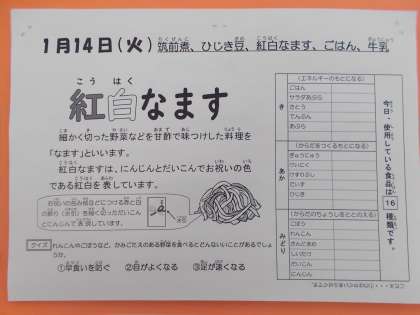 1月14日(火) 筑前煮、ひじき豆、紅白なます、ごはん、牛乳
紅白なます
こうはく
細かく切った野菜などを甘酢で味つけした料理を
「なます」といいます。
紅白なますは、にんじんとだいこんでお祝いの色
である紅白を表しています。
お祝いの包み紙などにつける赤と白
の飾り(水引)を細く切っただいこん
とにんじんで表現しています。
水引
クイズ
れんこんやごぼうなど、かみごたえのある野菜を食べるとどんないいことがあるでしょ
うか。
①早食いを防ぐ ②目がよくなる ③足が速くなる
今日、使用している食品は16種類です。
き
(エネルギーのもとになる)
ごはん
サラダあぶら
さとう
でんぷん
あぶら
あか
(からだをつくるもとになる)
ぎゅうにゅう
だいず
ひじき
みどり
(からだのちょうしをととのえる)
ごぼう
れんこん
さんどまめ
しいたけ
だいこん
にんじん